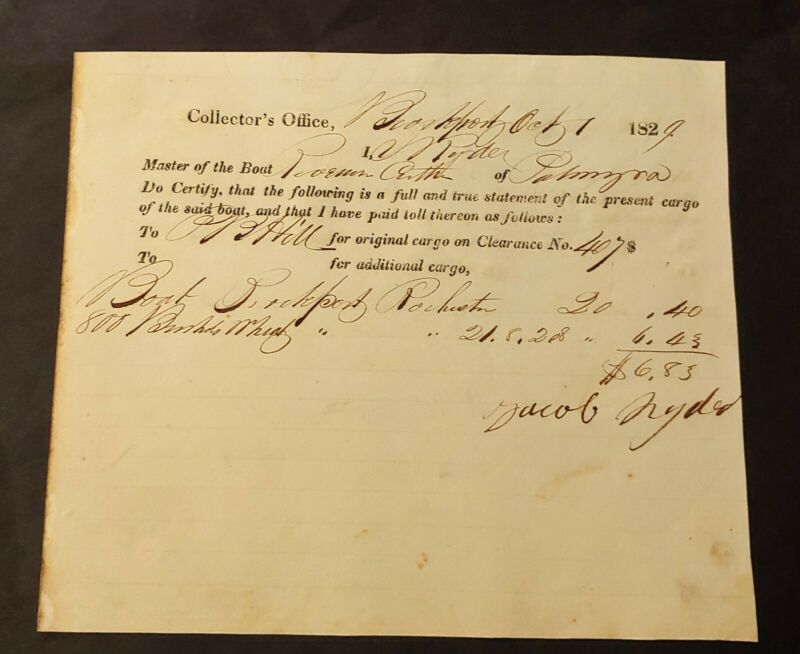 Collector's Office, Brockport Oct 1 1829
I, J Ryder
Master of the Boat of Palmyra
Do Certify, that the following is a full and true statement of the present cargo
of the said boat, and that I have paid toll thereon as follows:
To Hill for original cargo on Clearance No. 407 $
To for additional cargo,
Boat Brockport Rochester 20 .40
800 Bushels Wheat " " 21.8.28 " 6.43
$6.83
Jacob Ryder